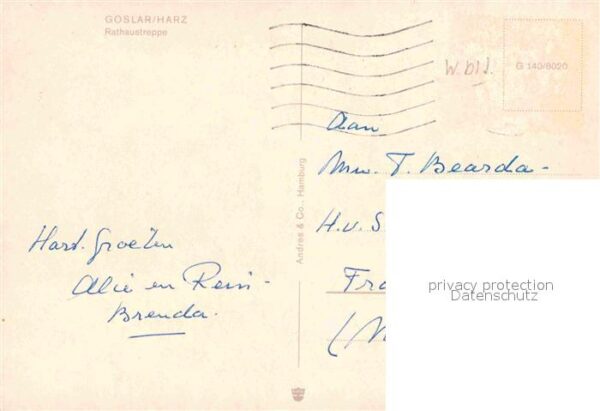 GOSLAR/HARZ
Rathaustreppe
W. bld.
G 140/8020
Andres & Co., Hamburg
Aan
Mw. T. Bearda-
H.v. S
Fra
(N
Hart. Groeten
Alie en Rein-
Brenda.
privacy protection
Datenschutz